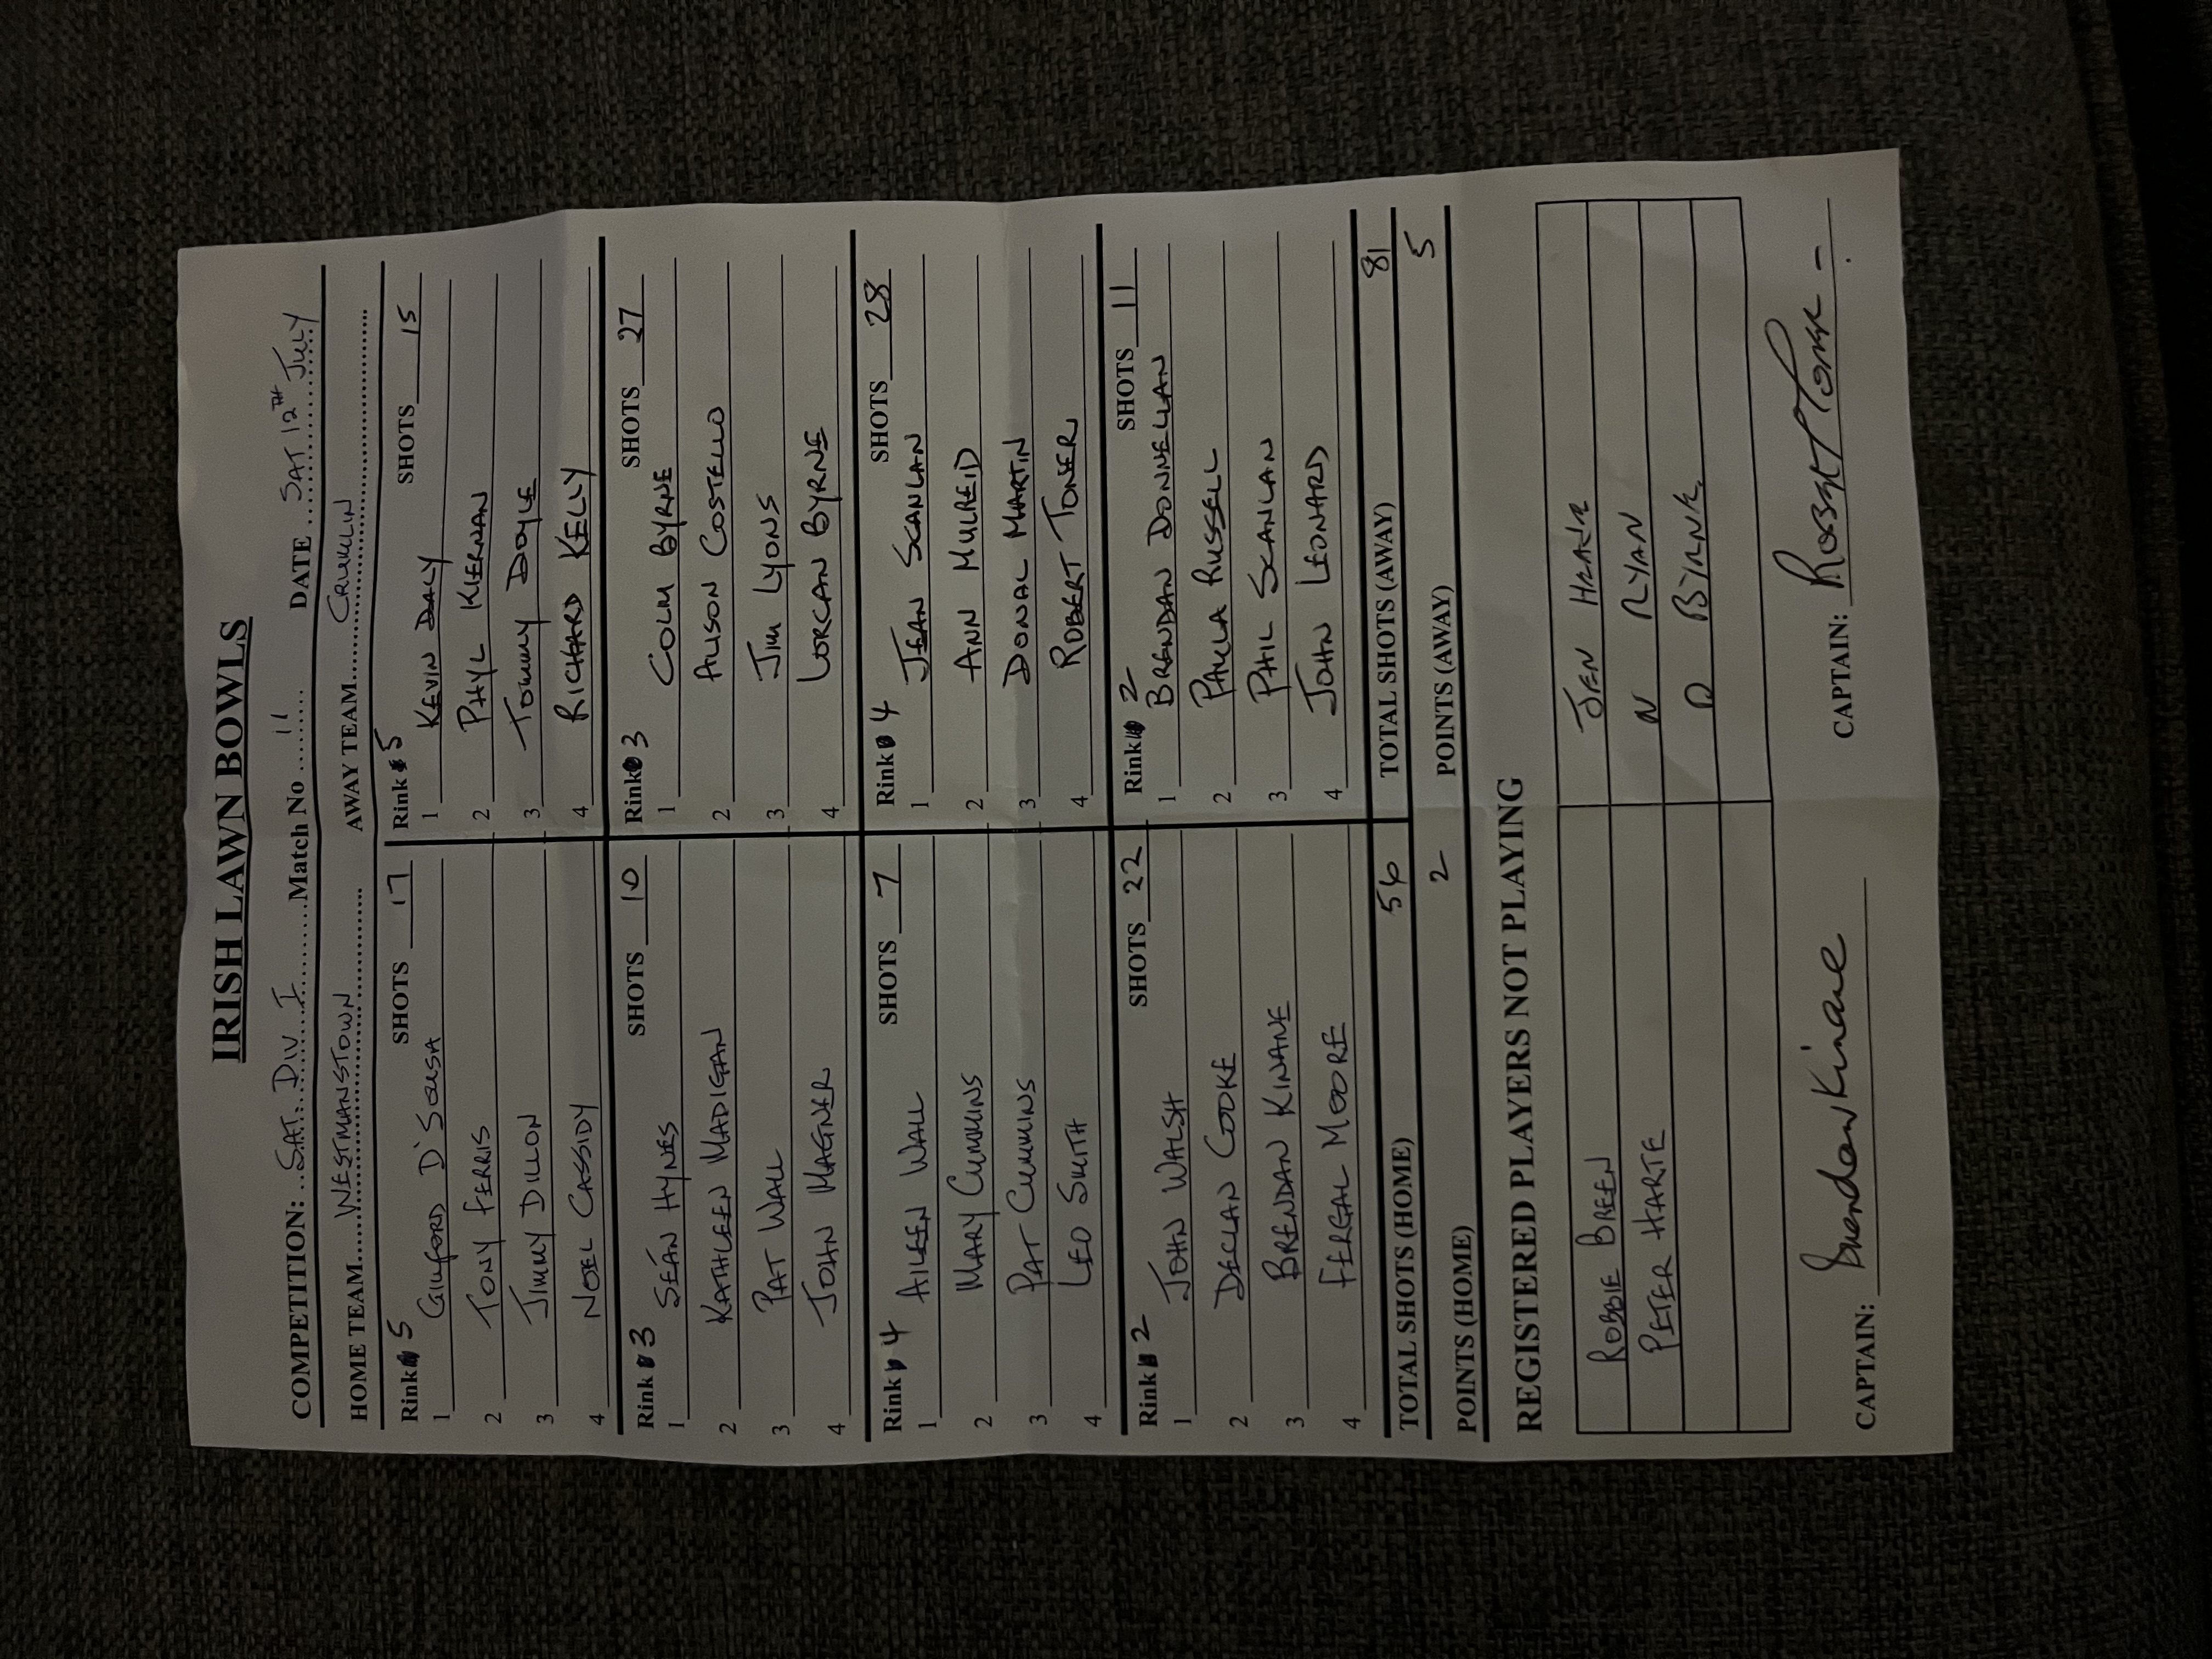 IRISH LAWN BOWLS
COMPETITION: SAT. DIV I Match No 11 DATE SAT 12TH JULY
HOME TEAM WESTMANSTOWN AWAY TEAM CRUMLIN
Rink 5 SHOTS 17 Rink 5 SHOTS 15
1 D'SOUSA 1 KEVIN DALY
2 TONY FERRIS 2 PHYL KIERNAN
3 JIMMY DILLON 3 TOMMY DOYLE
4 NOEL CASSIDY 4 RICHARD KELLY
Rink 3 SHOTS 10 Rink 3 SHOTS 27
1 SEÁN HYNES 1 COLM BYRNE
2 KATHLEEN MADIGAN 2 ALISON COSTELLO
3 PAT WALL 3 JIM LYONS
4 JOHN MAGNER 4 LORCAN BYRNE
Rink 4 SHOTS 7 Rink 4 SHOTS 28
1 AILEEN WALL 1 JEAN SCANLAN
2 MARY CUMMINS 2 ANN MULREID
3 PAT CUMMINS 3 DONAL MARTIN
4 LEO SMITH 4 ROBERT TONER
Rink 2 SHOTS 22 Rink 2 SHOTS 11
1 JOHN WALSH 1 BRENDAN DONNELLAN
2 DECLAN COOKE 2 PAULA RUSSELL
3 BRENDAN KINANE 3 PHIL SCANLAN
4 FERGAL MOORE 4 JOHN LEONARD
TOTAL SHOTS (HOME) 56 TOTAL SHOTS (AWAY) 81
POINTS (HOME) 2 POINTS (AWAY) 5
REGISTERED PLAYERS NOT PLAYING
ROBBIE BREEN JEN
PETER HARTE N RYAN
D BYRNE
CAPTAIN: Brendan Kinane CAPTAIN: Robert Toner